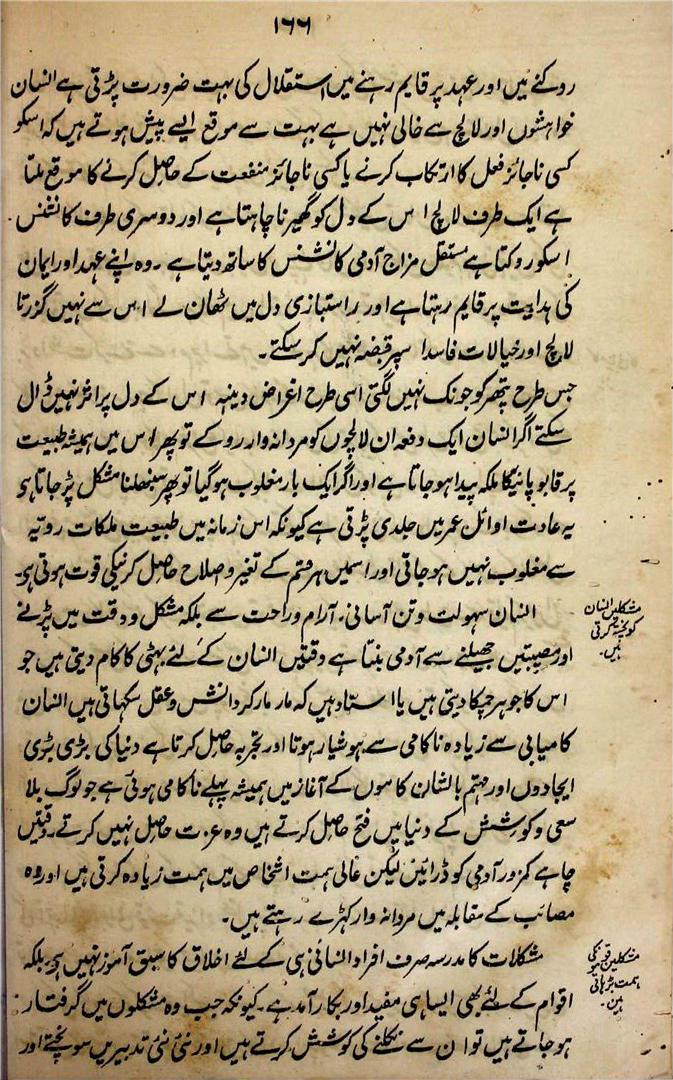 ۱۶۶
روکنے میں اور عہد پر قایم رہنے میں استقلال کی بہت ضرورت پڑتی ہے انسان
خواہشوں اور لالچ سے خالی نہیں ہے بہت سے موقع ایسے پیش ہوتے ہیں کہ اسکو
کسی ناجائز فعل کا ارتکاب کرنے یا کسی ناجائز منفعت کے حاصل کرنے کا موقع ملتا
ہے ایک طرف لالچ اس کے دل کو گھیرنا چاہتا ہے اور دوسری طرف کانشنس
اسکو روکتا ہے مستقل مزاج آدمی کانشنس کا ساتھ دیتا ہے ۔ وہ اپنے عہد اور ایمان
کی ہدایت پر قایم رہتا ہے اور راستبازی دل میں ٹھان لے اس سے نہیں گزرتا
لالچ اور خیالات فاسد اسپر قبضہ نہیں کر سکتے ۔
جس طرح پتھر کو جونک نہیں لگتی اسی طرح اغراض دینہ اس کے دل پر اثر نہیں ڈال
سکتے اگر انسان ایک دفعہ ان لالچوں کو مردانہ وار روکے تو پھر اس میں ہمیشہ طبیعت
پر قابو پانیکا ملکہ پیدا ہو جاتا ہے اور اگر ایک بار مغلوب ہو گیا تو پھر سنبھلنا مشکل پڑ جاتا ہی
یہ عادت اوائل عمر میں جلدی پڑتی ہے کیونکہ اس زمانہ میں طبیعت ملکات رویّہ
سے مغلوب نہیں ہو جاتی اور اسمیں ہر قسم کے تغیر و صلاح حاصل کرنیکی قوت ہوتی ہی۔
مشکلیں انسان
کو پختہ کرتی
ہیں ۔
انسان سہولت و تن آسانی ۔ آرام و راحت سے بلکہ مشکل و دقت میں پڑنے
اور مصیبتیں جھیلنے سے آدمی بنتا ہے دقتیں انسان کے لئے بھٹی کا کام دیتی ہیں جو
اس کا جوہر چمکا دیتی ہیں یا استاد ہیں کہ مار مار کر دانش و عقل سکہاتی ہیں انسان
کامیابی سے زیادہ ناکامی سے ہوشیار ہوتا اور تجربہ حاصل کرتا ہے دنیا کی بڑی بڑی
ایجادوں اور مہتم بالشان کاموں کے آغاز میں ہمیشہ پہلے ناکامی ہوئی ہے جو لوگ بلا
سعی و کوشش کے دنیا میں فتح حاصل کرتے ہیں وہ عزت حاصل نہیں کرتے ۔ دقتیں
چاہے کمزور آدمی کو ڈرائیں لیکن عالی ہمت اشخاص میں ہمت زیادہ کرتی ہیں اور وہ
مصائب کے مقابلہ میں مردانہ وار کہڑے رہتے ہیں ۔
مشکلیں قوموں کی
ہمت بڑہاتی
ہیں ۔
مشکلات کا مدرسہ صرف افراد انسانی ہی کے لئے اخلاق کا سبق آموز نہیں ہی بلکہ
اقوام کے لئے بھی ایسا ہی مفید اور بکار آمد ہے ۔ کیونکہ جب وہ مشکلوں میں گرفتار
ہو جاتے ہیں تو ان سے نکلنے کی کوشش کرتے ہیں اور نئی نئی تدبیریں سونچتے اور